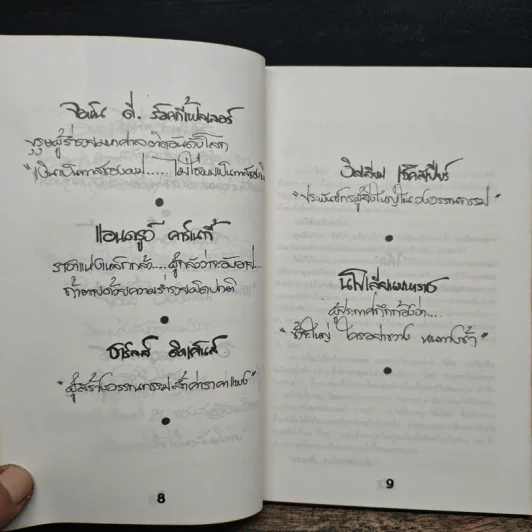 จอห์น ดี. ร็อคกี้เฟลเลอร์
บุรุษผู้ร่ำรวยมหาศาลติดอันดับโลก
"เงินเป็นทาสของผม..... ไม่ใช่ผมเป็นทาสของเงิน
แอนดรูว์ คาร์เนกี้
ราชาแห่งเหล็กกล้า...ผู้กล้าว่าจะอับอาย...
ถ้าตายด้วยความร่ำรวยผิดปกติ
ชาร์ลส์ ดิคเก้นส์
"ผู้สร้างวรรณกรรมล้ำค่าราคาแพง"
8
วิลเลี่ยม เช็คสเปียร์
"ประพันธ์กรผู้ยิ่งใหญ่ในวงวรรณกรรม"
นโปเลียนมหาราช
ผู้ประกาศกึกก้องว่า...
"ข้าใหญ่ ใครอย่าขวาง หนทางข้า"
9